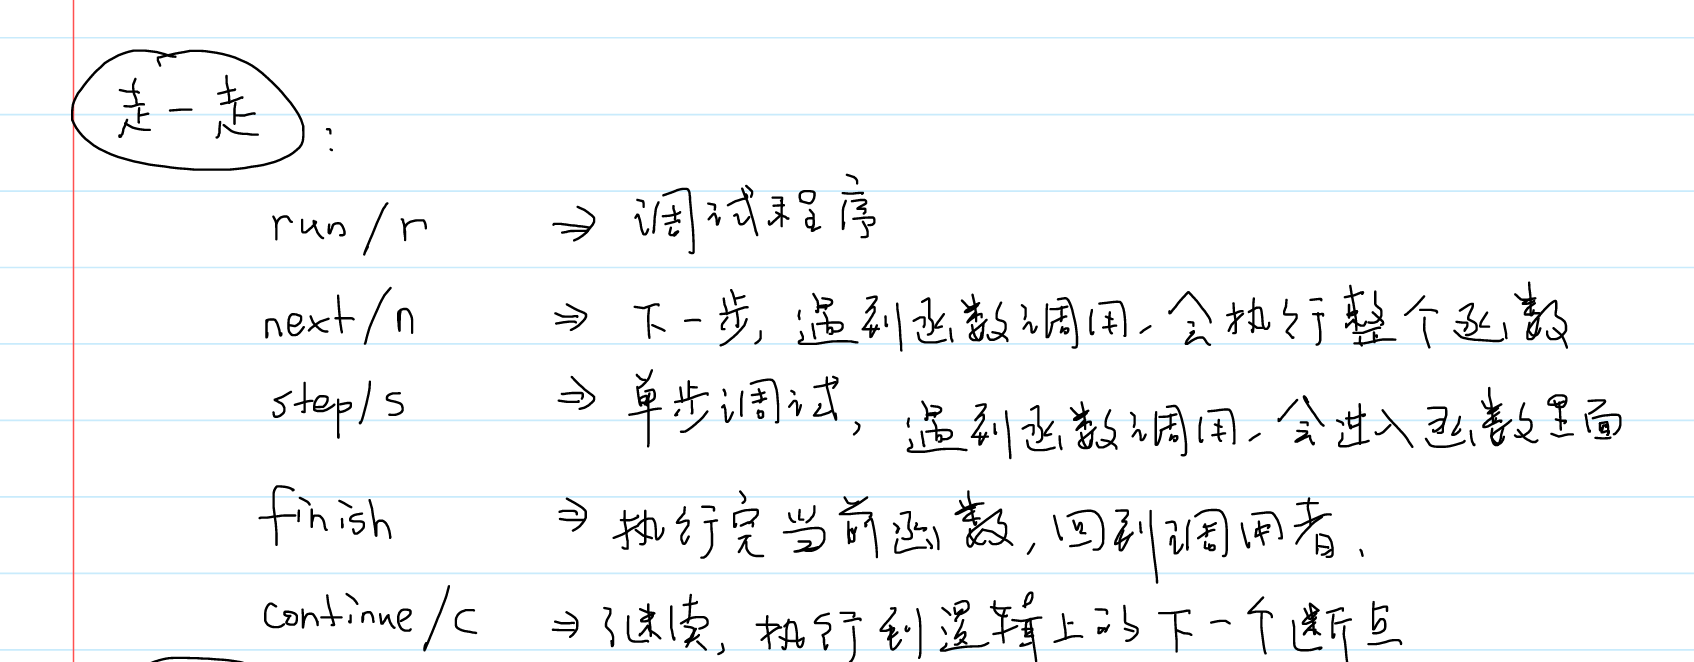 走一走:
run/r ⇒ 调试程序
next/n ⇒ 下一步, 遇到函数调用、会执行整个函数
step/s ⇒ 单步调试, 遇到函数调用、会进入函数里面
finish ⇒ 执行完当前函数, 回到调用者.
continue/c ⇒ 继续, 执行到逻辑上的下一个断点